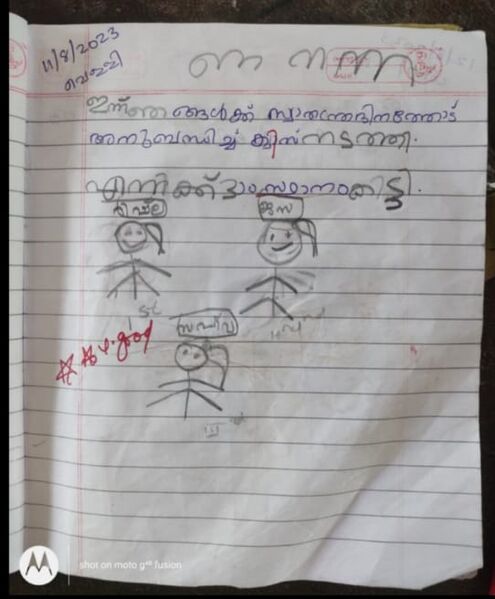 11/8/2023
വെള്ളി
ണ ന ന്ന
ഇന്ന് ഞങ്ങൾക്ക് സ്വാതന്ത്ര്യദിനത്തോട്
അനുബന്ധിച്ച് ക്വിസ് നടത്തി.
എനിക്ക് 3ാം സ്ഥാനം കിട്ടി.
ജസ
1 st
v. good
III
shot on moto g⁴⁸ fusion